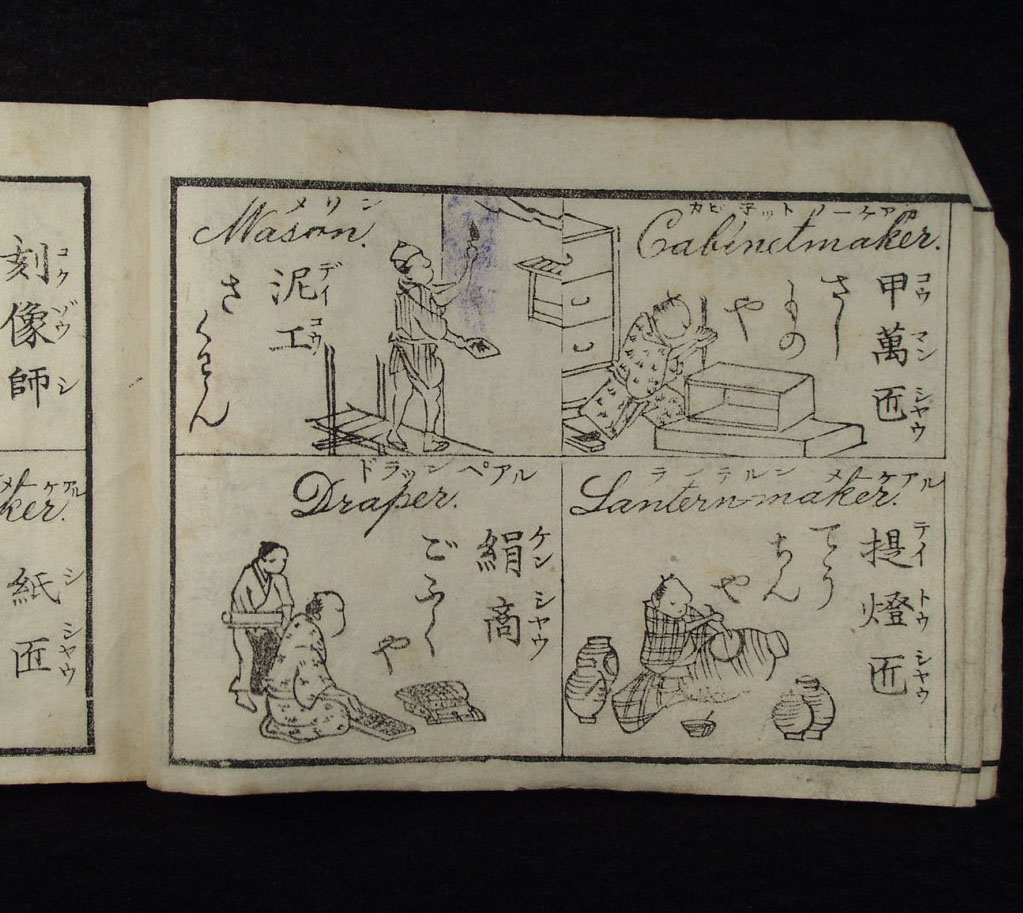 カビ子ットメーケアル
Cabinetmaker.
甲萬匠
コウマンシヤウ
さし
ものや
メリン
Mason.
泥工
デイコウ
さくわん
ランテルンメーケアル
Lantern-maker.
提燈匠
テイトウシヤウ
てう
ちん
や
ドラッンペアル
Draper.
絹商
ケンシヤウ
ごふく
や
刻像師
コクゾウシ
メーケアル
ker.
紙匠
シシヤウ